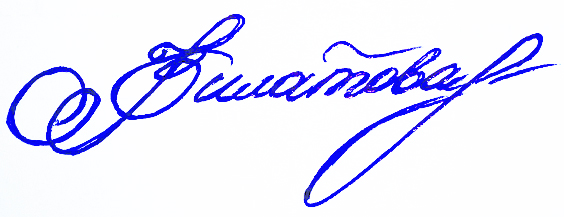 Филатова